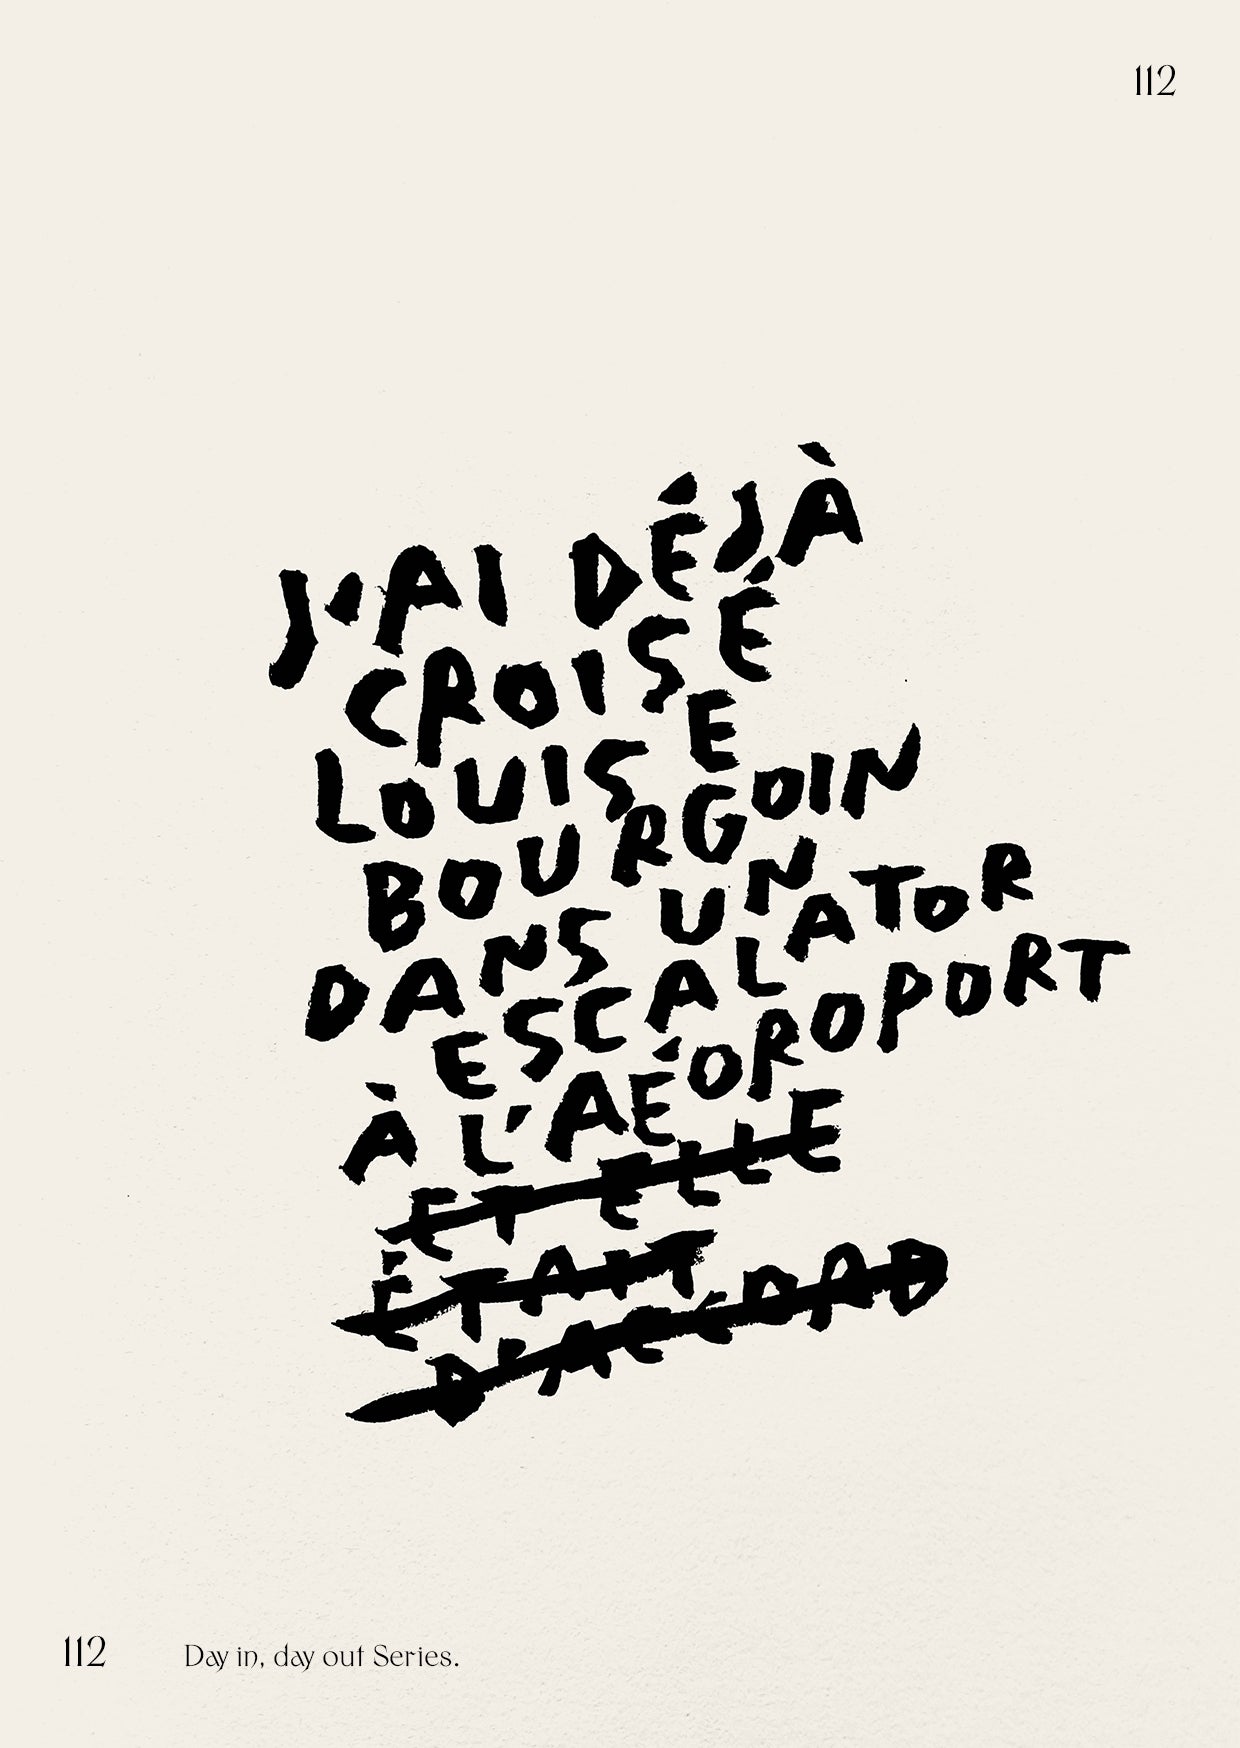 112
J'AI DÉJÀ
CROISÉ
LOUISE
BOURGOIN
DANS UN
ESCALATOR
À L'AÉOROPORT
ET ELLE
ÉTAIT
D'ACCORD
112 Day in, day out Series.